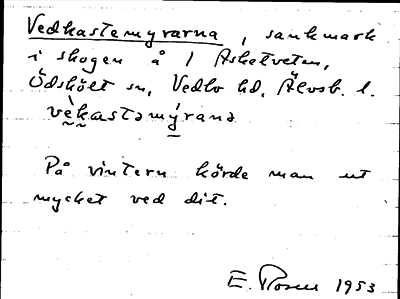 Vedkastemyrarna, sankmark
i skogen å 1 Asketveten,
Ödskölt sn, Vedbo hd, Älvsb. l.
vèkastəmýrana
På vintern körde man ut
mycket ved dit.
E. Rosen 1953